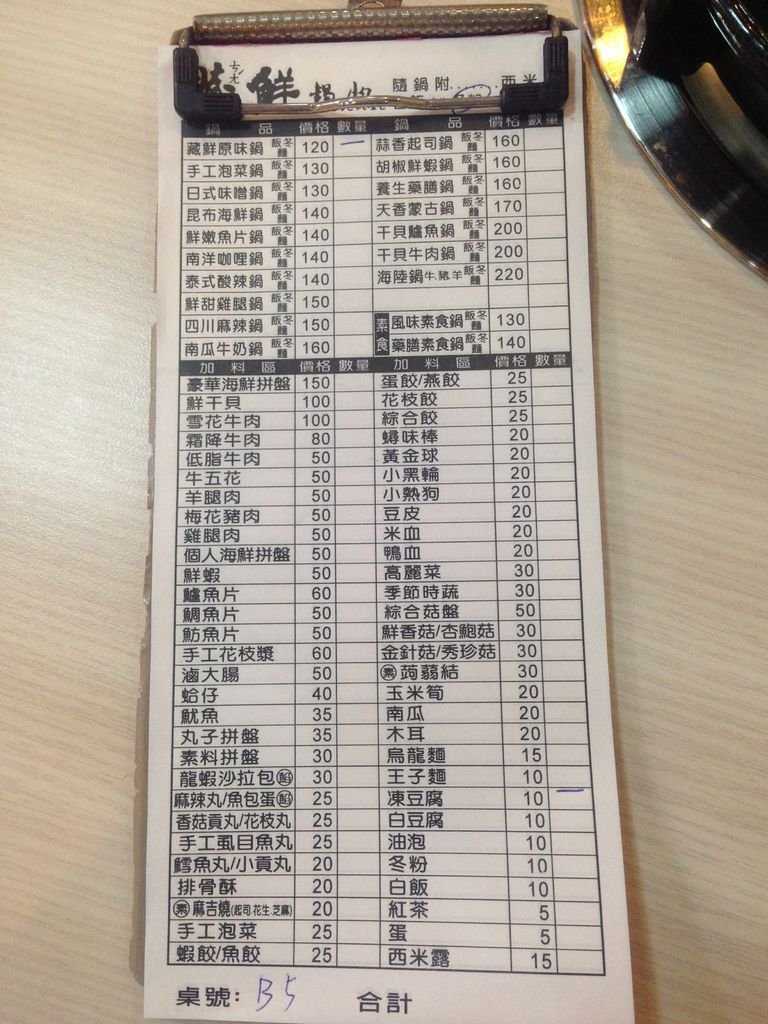 鮮 鍋物 隨鍋附 西米
鍋 品 價格 數量 鍋 品 價格 數量
藏鮮原味鍋 飯冬麵 120 一 蒜香起司鍋 飯冬麵 160
手工泡菜鍋 飯冬麵 130 胡椒鮮蝦鍋 飯冬麵 160
日式味噌鍋 飯冬麵 130 養生藥膳鍋 飯冬麵 160
昆布海鮮鍋 飯冬麵 140 天香蒙古鍋 飯冬麵 170
鮮嫩魚片鍋 飯冬麵 140 干貝鱸魚鍋 飯冬麵 200
南洋咖哩鍋 飯冬麵 140 干貝牛肉鍋 飯冬麵 200
泰式酸辣鍋 飯冬麵 140 海陸鍋 牛.豬.羊 飯冬麵 220
鮮甜雞腿鍋 飯冬麵 150
四川麻辣鍋 飯冬麵 150 素食 風味素食鍋 飯冬麵 130
南瓜牛奶鍋 飯冬麵 160 藥膳素食鍋 飯冬麵 140
加料區 價格 數量 加料區 價格 數量
豪華海鮮拼盤 150 蛋餃/燕餃 25
鮮干貝 100 花枝餃 25
雪花牛肉 100 綜合餃 25
霜降牛肉 80 蟳味棒 20
低脂牛肉 50 黃金球 20
牛五花 50 小黑輪 20
羊腿肉 50 小熱狗 20
梅花豬肉 50 豆皮 20
雞腿肉 50 米血 20
個人海鮮拼盤 50 鴨血 20
鮮蝦 50 高麗菜 30
鱸魚片 60 季節時蔬 30
鯛魚片 50 綜合菇盤 50
魴魚片 50 鮮香菇/杏鮑菇 30
手工花枝漿 60 金針菇/秀珍菇 30
滷大腸 50 素 蒟蒻結 30
蛤仔 40 玉米筍 20
魷魚 35 南瓜 20
丸子拼盤 35 木耳 20
素料拼盤 30 烏龍麵 15
龍蝦沙拉包 餡 30 王子麵 10
麻辣丸/魚包蛋 餡 25 凍豆腐 10 一
香菇貢丸/花枝丸 25 白豆腐 10
手工虱目魚丸 25 油泡 10
鱈魚丸/小貢丸 20 冬粉 10
排骨酥 20 白飯 10
素 麻吉燒(起司.花生.芝麻) 20 紅茶 5
手工泡菜 25 蛋 5
蝦餃/魚餃 25 西米露 15
桌號: B5 合計